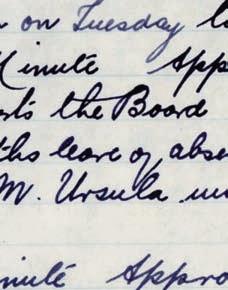 on Tuesday
Minute App
the Board
ths leave of abse
M. Ursula
inute Appro